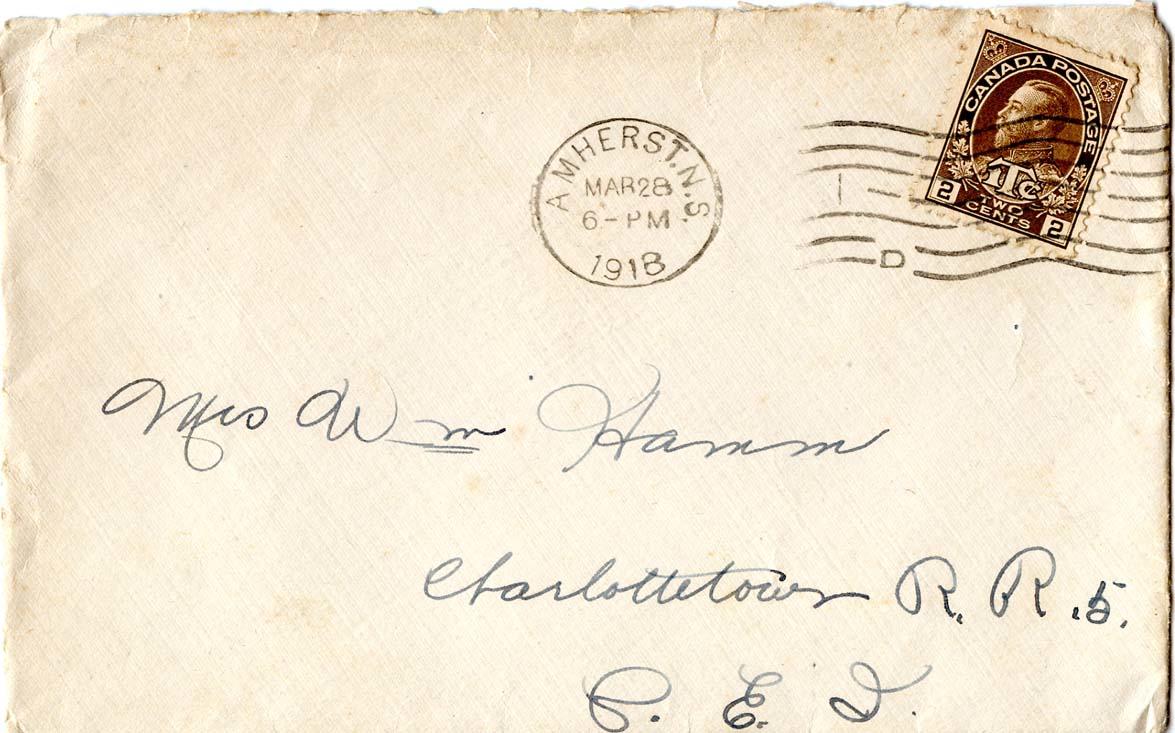 CANADA POSTAGE
1Tc
2 TWO CENTS 2
AMHERST. N.S.
MAR 28
6 - PM
1918
D
Mrs Wm Hamm
Charlottetown R. R. 5.
P. E. I.